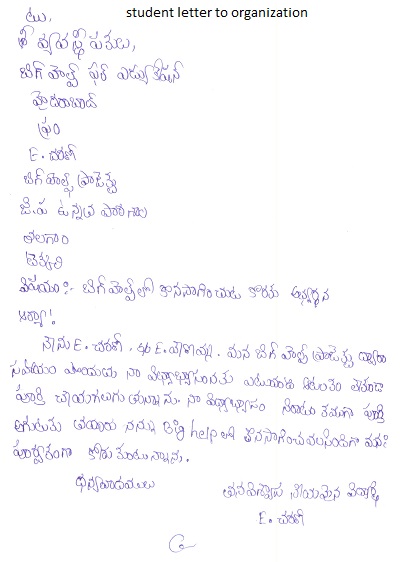 student letter to organization
టు,
శ్రీ వ్యవస్థాపకులు,
బిగ్ హెల్ప్ ఫర్ ఎడ్యుకేషన్
హైదరాబాద్
ఫ్రం
E. చరణ్
బిగ్ హెల్ప్ ప్రాజెక్టు
జి.ప ఉన్నత పాఠశాల
తలగాం
టెక్కలి
విషయం :- బిగ్ హెల్ప్ లో కొనసాగించుట కొరకు అభ్యర్థన
సర్యా!
నేను E. చరణ్. S/o E. మన బిగ్ హెల్ప్ ప్రాజెక్టు ద్వారా
సహాయం పొందుచు నా విద్యాభ్యాసంనకు ఎటువంటి ఆటంకం లేకుండా
పూర్తి చేయగలుగుతున్నాను. నా విద్యాభ్యాసం పూర్తి
నన్ను Big help లో కొనసాగించవలసిందిగా
పూర్వకంగా కోరుకుంటున్నాను.
ధన్యవాదములు
తమ విధేయుడైన విద్యార్థి
E. చరణ్